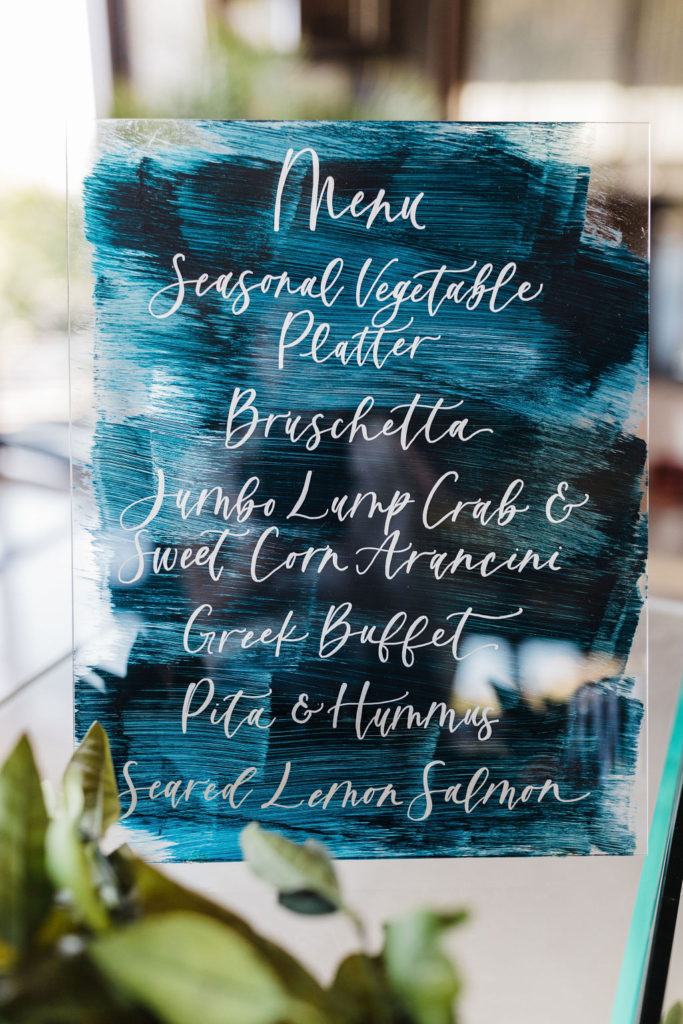 Menu
Seasonal Vegetable
Platter
Bruschetta
Jumbo Lump Crab &
Sweet Corn Arancini
Greek Buffet
Pita & Hummus
Seared Lemon Salmon